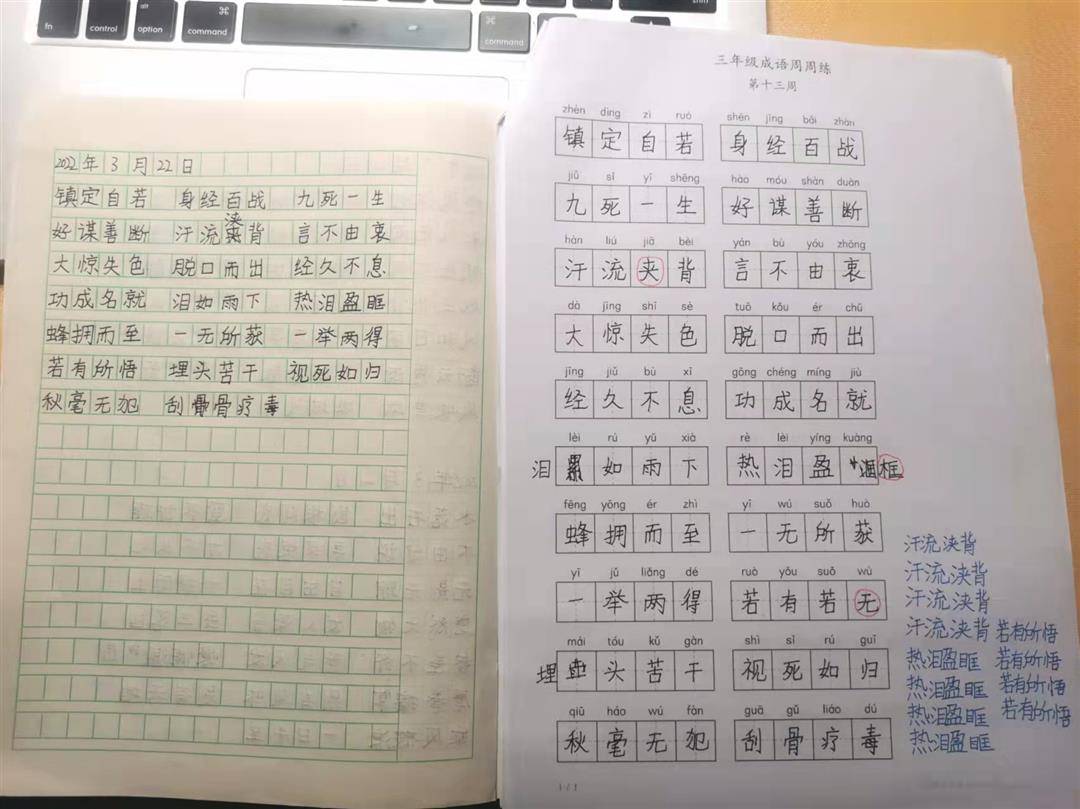 fn
control
alt
option
⌘
command
⌘
command
2022年3月22日
镇定自若 身经百战 九死一生
浃
好谋善断 汗流背 言不由衷
大惊失色 脱口而出 经久不息
功成名就 泪如雨下 热泪盈眶
蜂拥而至 一无所获 一举两得
若有所悟 埋头苦干 视死如归
秋毫无犯 刮骨疗毒
三年级成语周周练
第十三周
zhèn dìng zì ruó shēn jīng bǎi zhàn
镇定自若 身经百战
jiǔ sǐ yī shēng hào móu shàn duàn
九死一生 好谋善断
hàn liú jiā bèi yán bù yóu zhōng
汗流夹背 言不由衷
dà jīng shī sè tuō kǒu ér chū
大惊失色 脱口而出
jīng jiǔ bù xī gōng chéng míng jiù
经久不息 功成名就
lèi rú yǔ xià rè lèi yíng kuàng
泪 如雨下 热泪盈 框
fēng yōng ér zhì yī wú suǒ huò
蜂拥而至 一无所获
yī jǔ liǎng dé ruò yǒu suǒ wù
一举两得 若有若无
mái tóu kǔ gàn shì sǐ rú guī
埋 头苦干 视死如归
qiū háo wú fàn guā gǔ liáo dú
秋毫无犯 刮骨疗毒
汗流浃背
汗流浃背
汗流浃背
汗流浃背 若有所悟
热泪盈眶 若有所悟
热泪盈眶 若有所悟
热泪盈眶 若有所悟
热泪盈眶
1 / 1